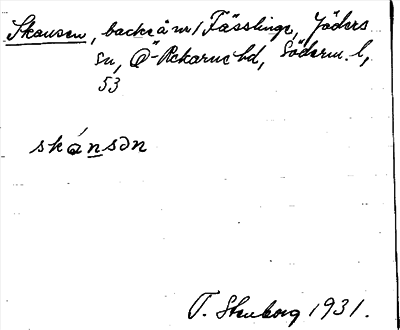 Skansen, backe å nr 1 Fässlinge, Jäders
sn, Ö-Rekarne hd, Söderm. l,
53
skánsən
T. Stenborg 1931.